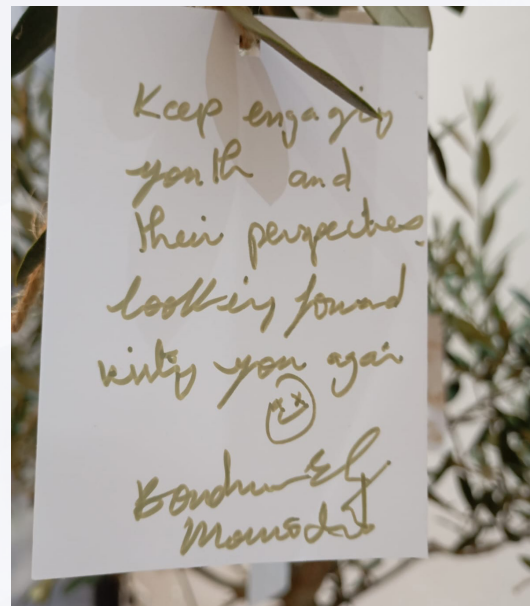 Keep engaging
youth and
their perspectives
looking forward
visiting you again